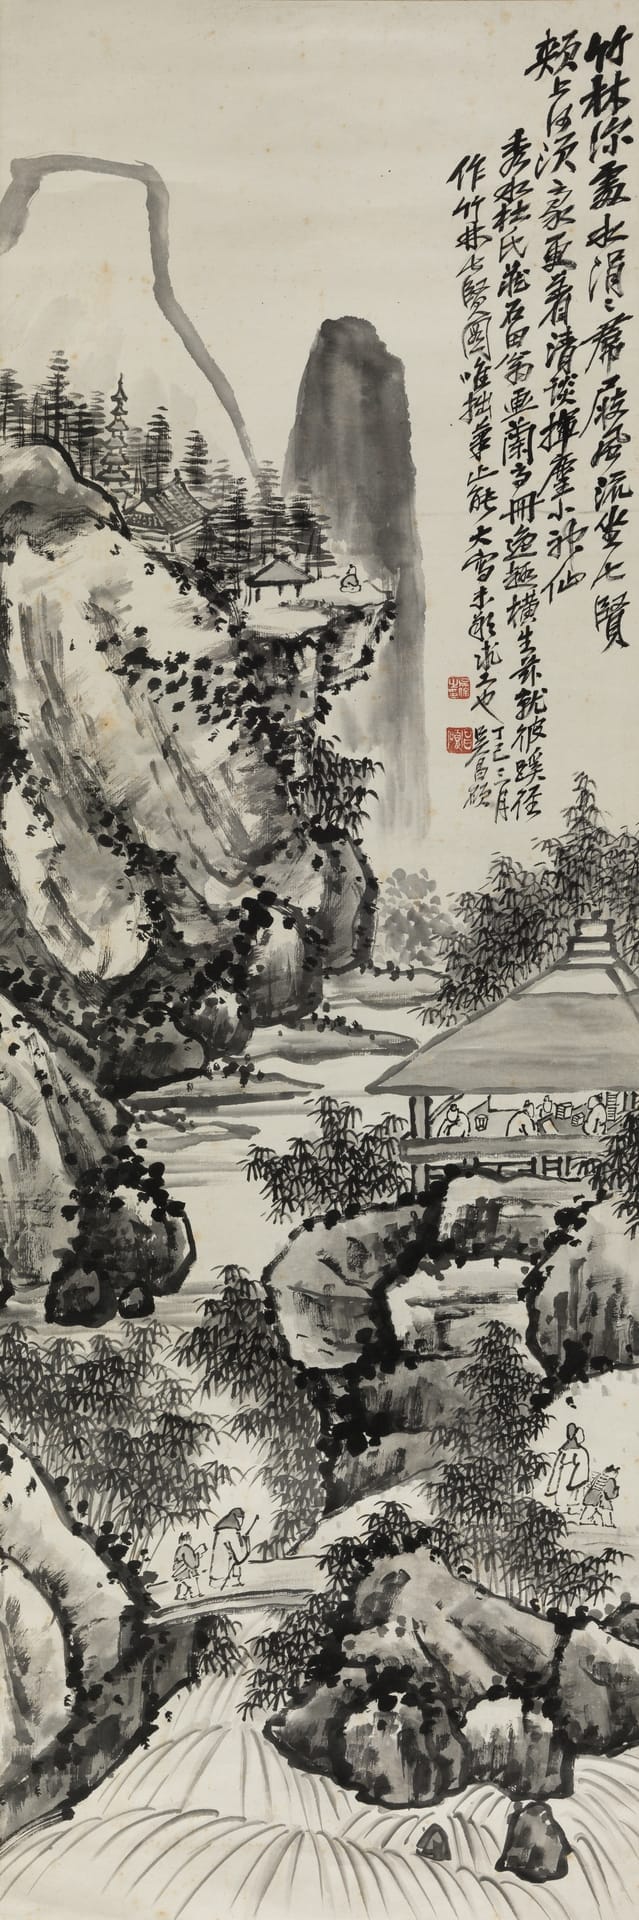 竹林深處水涓〻席屐風流坐七賢
頰上何須豪更着清談揮麈小神仙
秀水杜氏藏石田翁畫蘭亭冊逸趣橫生茲就彼蹊徑
作竹林七賢圖唯拙筆止能大寫未能求工也
丁巳月
吳昌碩